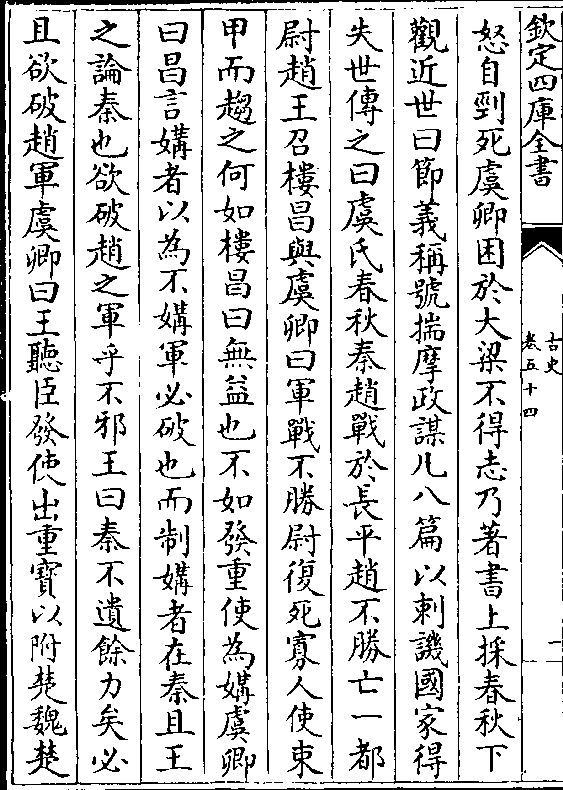 欽定四庫全書
古史
卷五十四
一
怒自剄死虞卿困於大梁不得志乃著書上採春秋下
觀近世曰節義稱號揣摩政謀凡八篇以刺譏國家得
失世傳之曰虞氏春秋秦趙戰於長平趙不勝亡一都
尉趙王召樓昌與虞卿曰軍戰不勝尉復死寡人使束
甲而趨之何如樓昌曰無益也不如發重使為媾虞卿
曰昌言媾者以為不媾軍必破也而制媾者在秦且王
之論秦也欲破趙之軍乎不邪王曰秦不遺餘力矣必
且欲破趙軍虞卿曰王聽臣發使出重寶以附楚魏楚